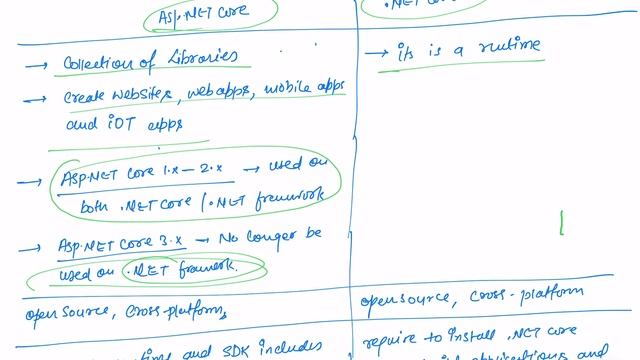 Asp.NET Core
.NET Core
→ Collection of Libraries
→ its is a runtime
→ create websites, web apps, mobile apps
and iOT apps
→ Asp.NET Core 1.x – 2.x → used on
both .NET Core / .NET framework
→ Asp.NET Core 3.x → No longer be
used on .NET framwork.
open source, cross-platform,
open source, cross-platform
and SDK includes
require to install .NET Core
applications and